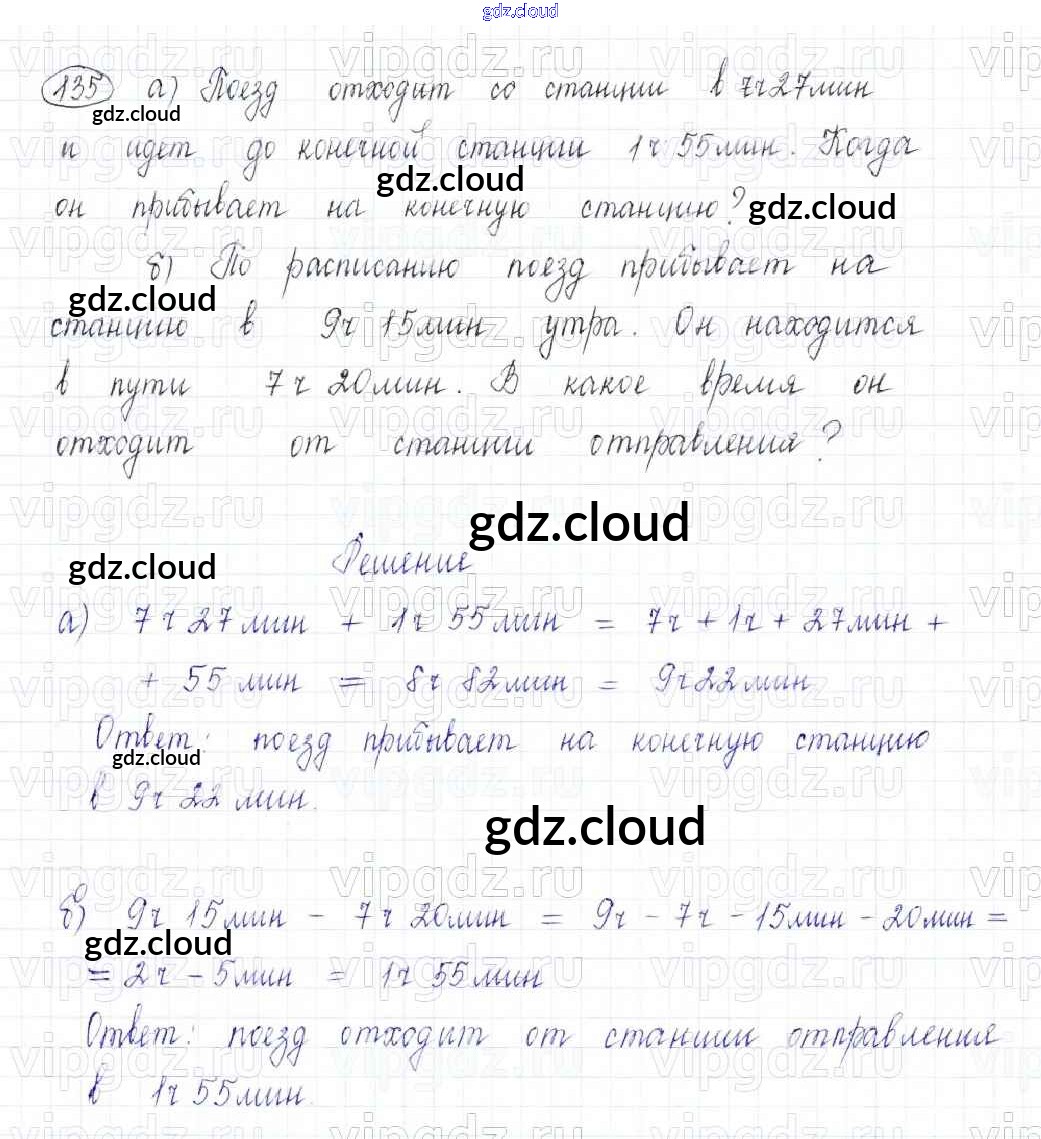 gdz.cloud
135 а) Поезд отходит со станции в 7ч27мин
gdz.cloud
и идет до конечной станции 1ч 55мин. Когда
gdz.cloud
он прибывает на конечную станцию? gdz.cloud
б) По расписанию поезд прибывает на
gdz.cloud
станцию в 9ч 15мин утра. Он находится
в пути 7ч 20мин. В какое время он
отходит от станции отправления?
gdz.cloud
Решение
gdz.cloud
а) 7ч 27мин + 1ч 55мин = 7ч + 1ч + 27мин +
+ 55 мин = 8ч 82мин = 9ч22мин
Ответ: поезд прибывает на конечную станцию
gdz.cloud
в 9ч 22 мин.
gdz.cloud
б) 9ч 15мин - 7ч 20мин = 9ч - 7ч - 15мин - 20мин =
gdz.cloud
= 2ч - 5мин = 1ч 55мин
Ответ: поезд отходит от станции отправления
в 1ч 55мин.
vipgdz.ru